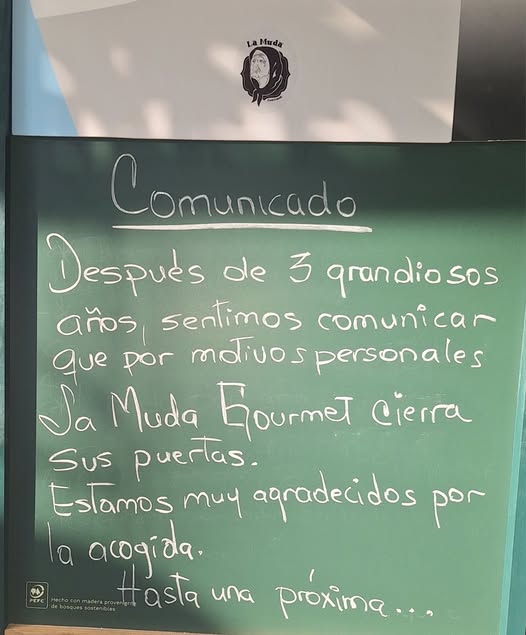 La Muda
Comunicado
Después de 3 grandiosos
años, sentimos comunicar
que por motivos personales
La Muda Gourmet cierra
sus puertas.
Estamos muy agradecidos por
la acogida.
Hasta una próxima...
PEFC
Hecho con madera proveniente
de bosques sostenibles